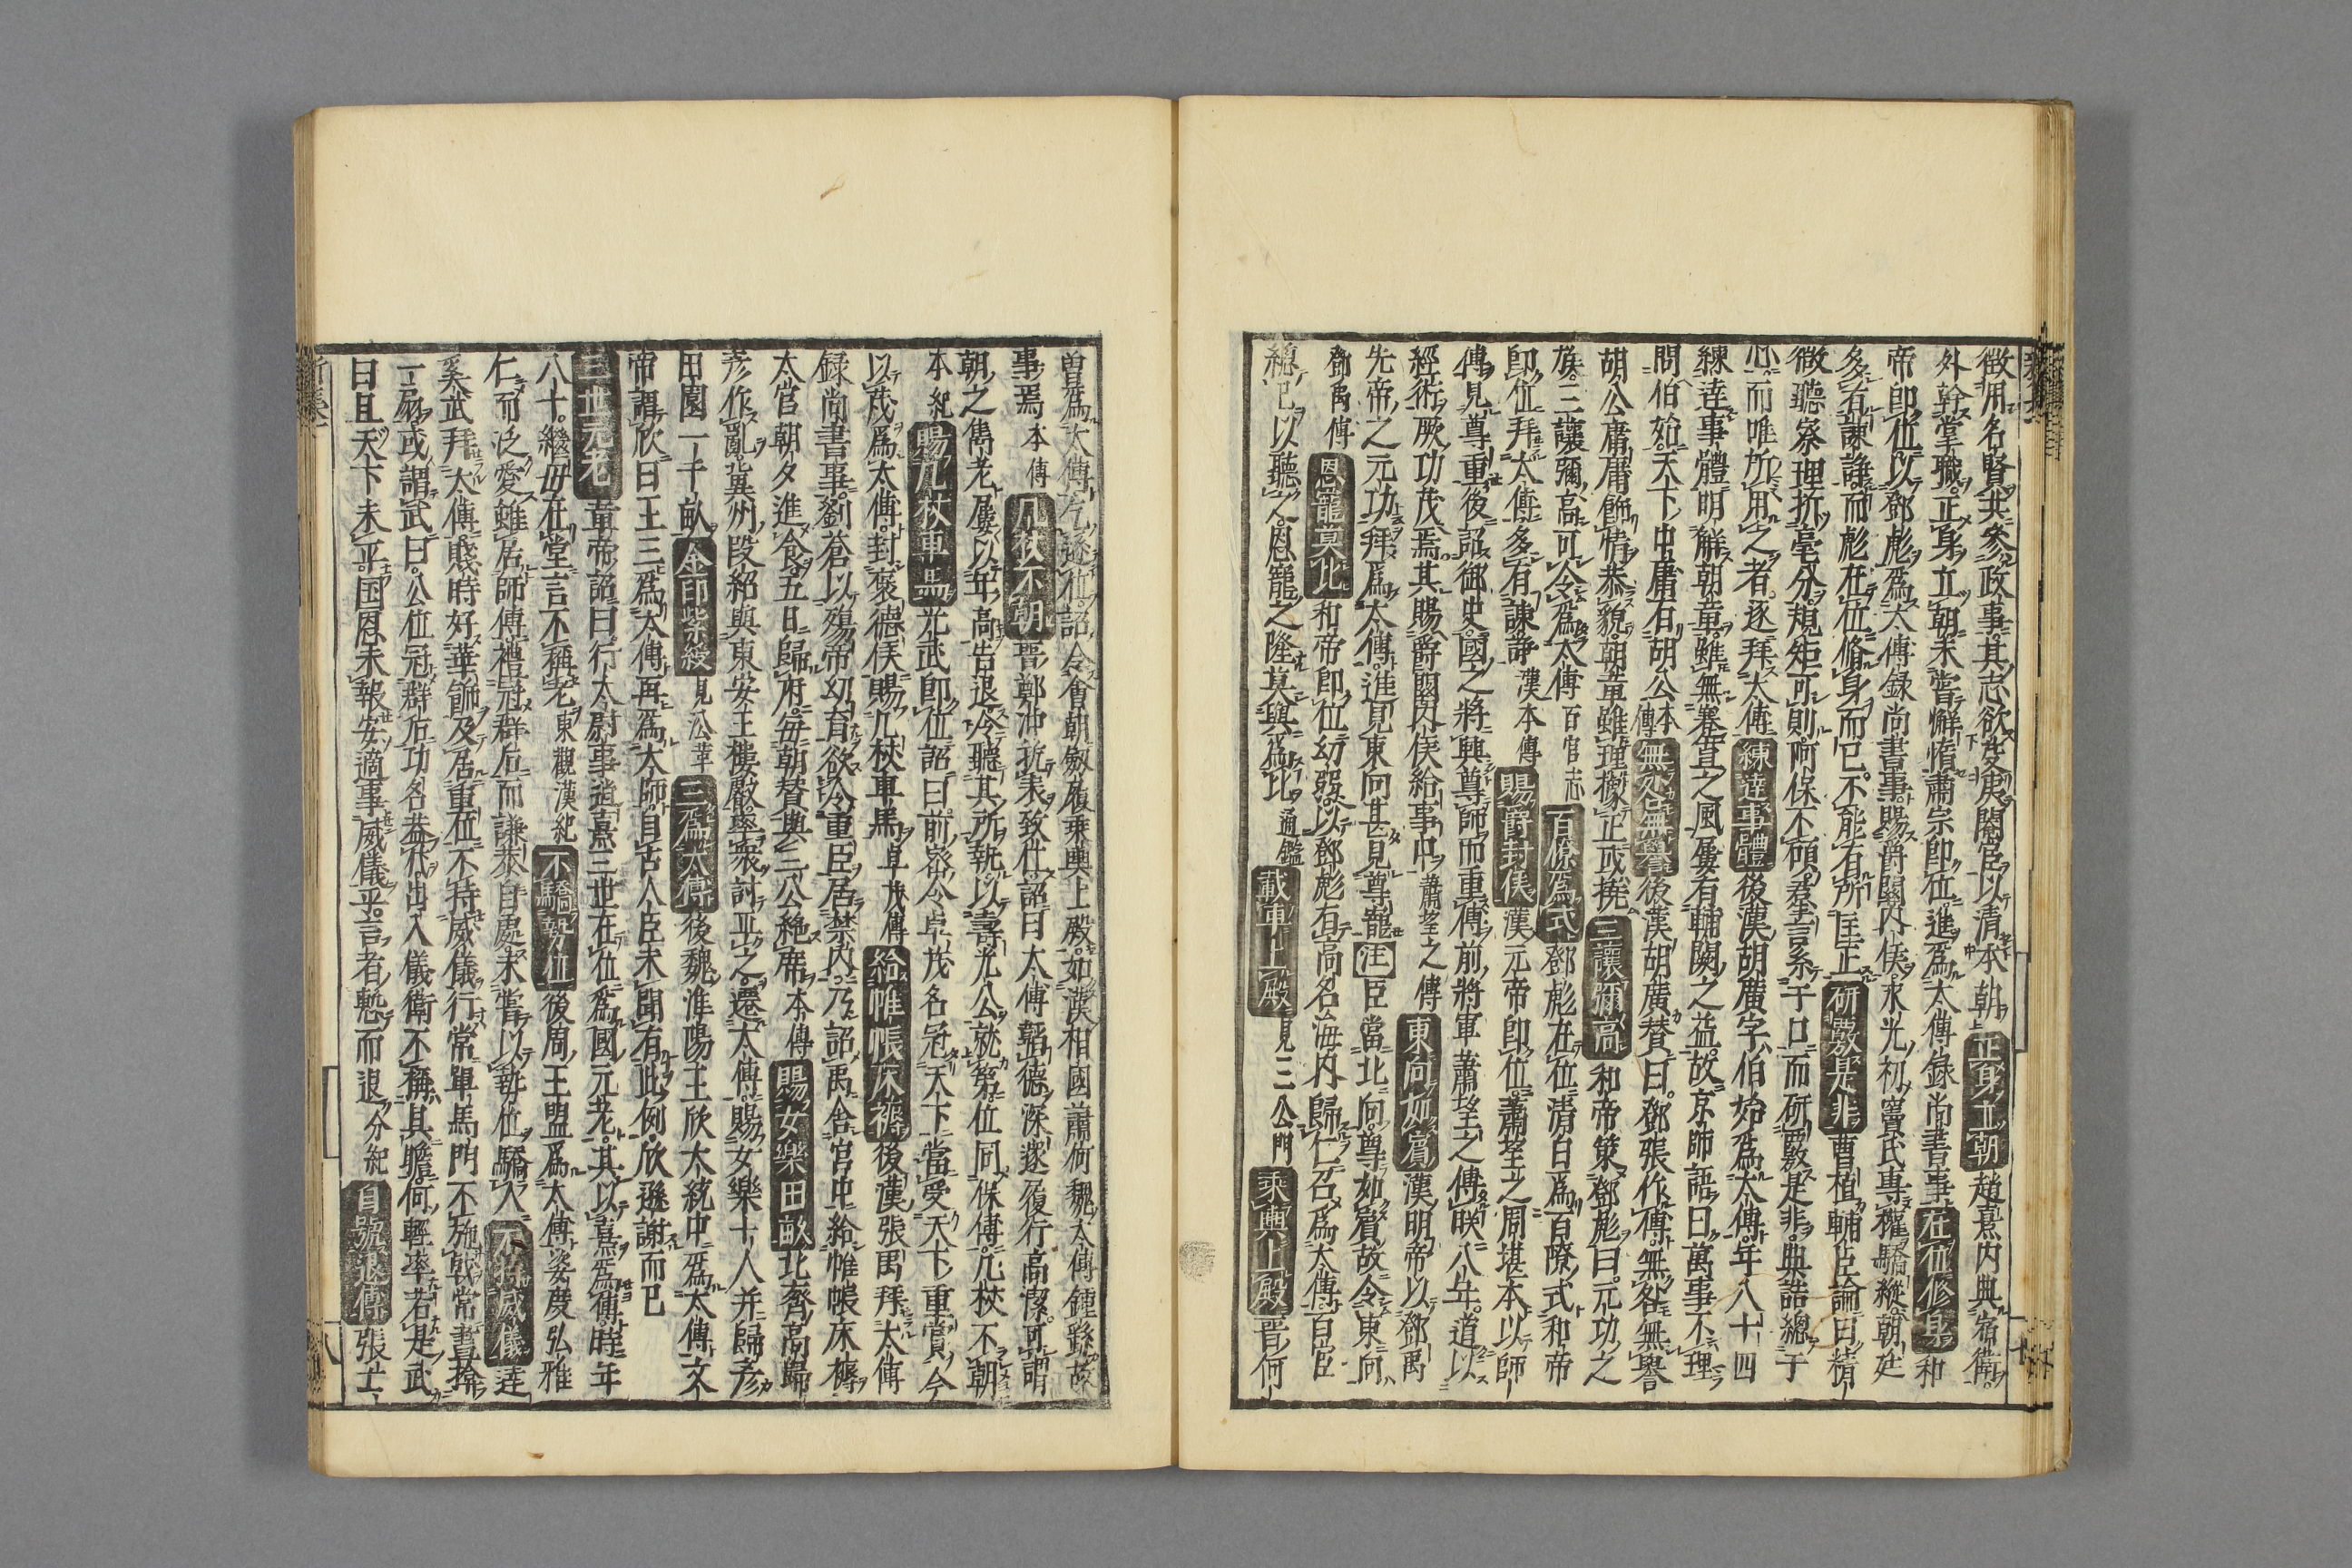 徵用名賢共參政事其志欲芟夷閹宦以清本朝正身立朝趙熹内典宿衛
外幹宰職正身立朝未嘗懈惰肅宗即位進爲太傅錄尚書事在位修身和
帝即位以鄧彪爲太傅錄尚書事賜爵關内侯永光初竇氏專權驕縱朝廷
多有諫諍而彪在位脩身而已不能有所匡正研覈是非曹植輔臣論曰精
微聽察理折毫分規矩可則阿保不傾羣言系于口而研覈是非典誥總于
心而唯所用之者逐拜太傅練達事體後漢胡廣字伯始爲太傅年八十四
練達事體明解朝章雖無蹇直之風屢有輔闕之益故京師語曰萬事不理
問伯始天下中庸有胡公本傳無咎無譽後漢胡廣贊曰鄧張作傅無咎無譽
胡公庸庸飾情恭貌朝章雖理據正或撓三讓彌高和帝策鄧彪曰元功之
族三讓彌高可令爲太傅百官志百僚爲式鄧彪在位清白爲百僚式和帝
即位拜太傅多有諫諍漢本傳賜爵封侯漢元帝即位蕭望之周堪本以師
傅見尊重後詔御史國之將興尊師而重傅前將軍蕭望之傅朕八年道以
經術厥功茂焉其賜爵關内侯給事中蕭望之傳東向如賓漢明帝以鄧禹
先帝之元功拜爲太傅進見東向甚見尊寵注臣當北向尊如賓故令東向
鄧禹傳恩寵莫比和帝即位幼弱以鄧彪有高名海内歸仁召爲太傅百官
總已以聽之恩寵之隆莫與爲比通鑑載車上殿見三公門乘輿上殿晋何
曽爲太傅乞遜位詔令會朝劔履乘輿上殿如漢相國蕭何魏太傅鍾繇故
事焉本傳几杖不朝晋鄭沖抗表致仕詔曰太傅韜德深邃履行高潔可謂
朝之雋老屢以年高告退令聽其所執以壽光公就第位同保傅几杖不朝
本紀賜几杖車馬光武即位詔曰前密令卓茂名冠天下當受天下重賞今
以茂爲太傅封褒德侯賜几杖車馬卓茂傳給帷帳床褥後漢張禹拜太傅
録尚書事劉蒼以殤帝幼育欲令重臣居禁内乃詔禹舍宮中給帷帳床褥
太官朝夕進食五日歸府每朝贊與三公絶席本傳賜女樂田畝北齊高歸
彦作亂冀州段紹與東安王樓殿率衆討平之遷太傅賜女樂十人并歸彦
田園一千畝金印紫綬見公革三爲太傅後魏淮陽王欣大統中爲太傅文
帝謂欣曰王三爲太傅再爲太師自古人臣未聞有此例欣遜謝而已
三世元老章帝詔曰行太尉事趙熹三世在位爲國元老其以熹爲傅時年
八十繼母在堂言不稱老東觀漢紀不驕勢位後周王盟爲太傅姿度弘雅
仁而泛愛雖居師傅禮冠群后而謙恭自處未嘗以執位驕人不持威儀達
奚武拜太傅賤時好華飾及居重位不持威儀行常單馬門不施戟常晝掩
一扇或謂武曰公位冠群后功名蓋世出入儀衛不稱其瞻何輕率若是武
曰且天下未平國恩未報安適事威儀乎言者慙而退分紀自號退傅張士